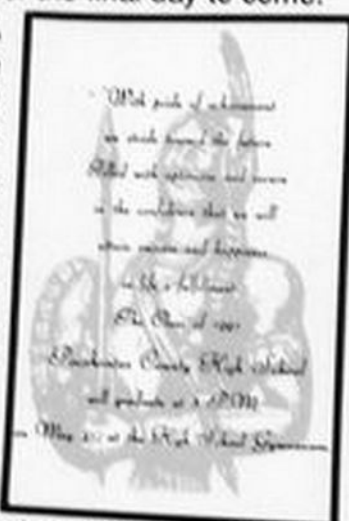 final day to come.
"With pride of achievement
we stride toward the future
Filled with optimism and
in the confidence that we will
attain success and happiness
in life's fulfillment.
The Class of 1991
Pocahontas County High School
will graduate at 8 P.M.
May at the High School Gymnasium